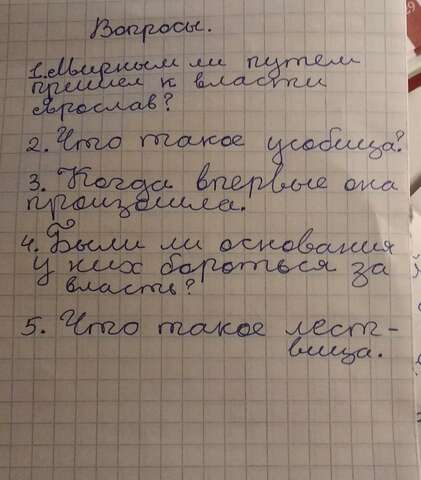 Вопросы.
1. Мирным ли путем
пришел к власти
Ярослав?
2. Что такое усобица?
3. Когда впервые она
произошла.
4. Были ли основания
у них бороться за
власть?
5. Что такое лест-
вица.